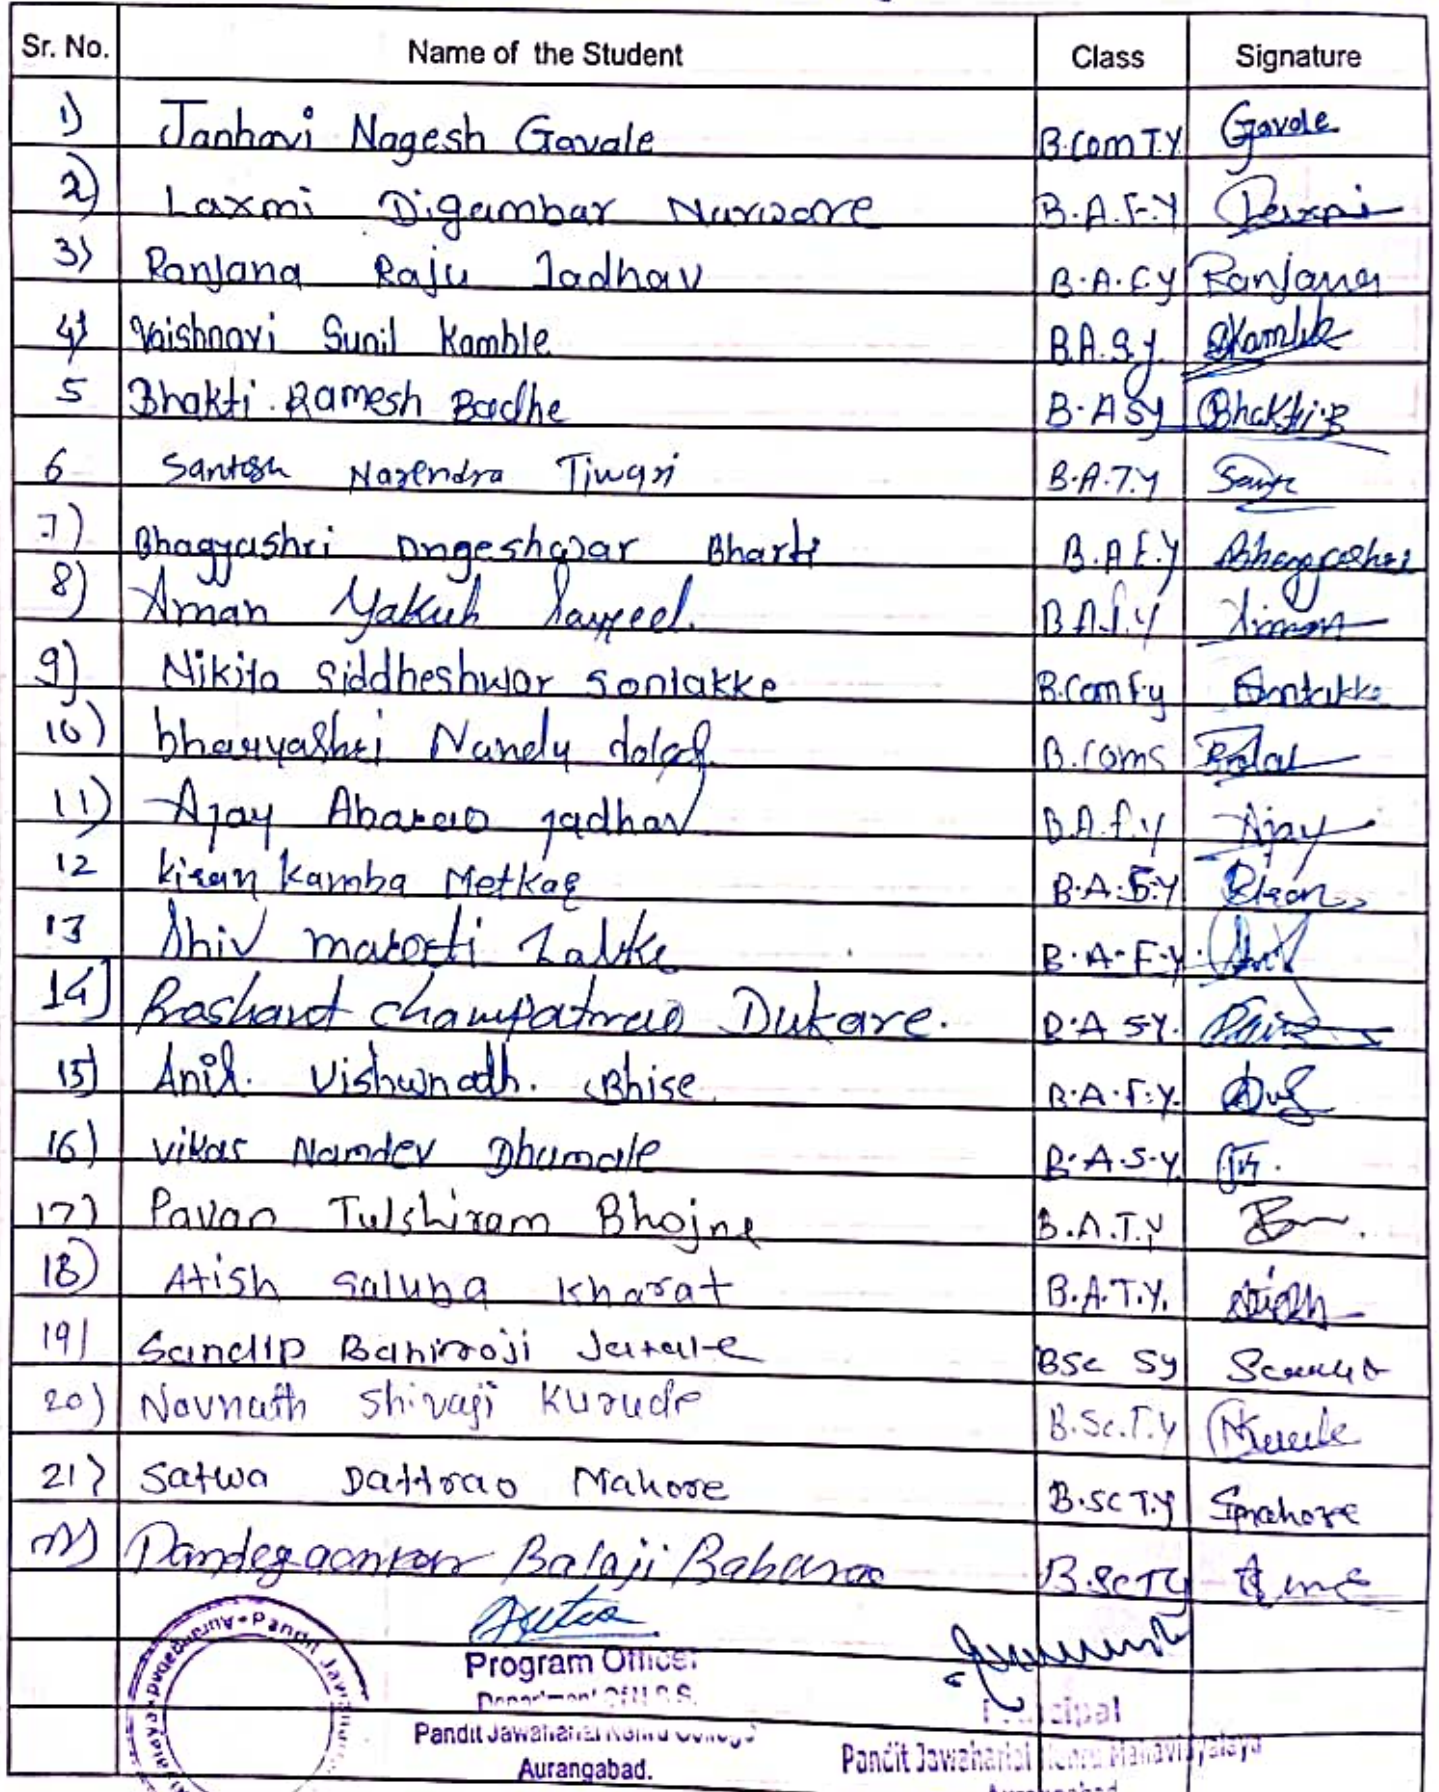 Sr. No. Name of the Student Class Signature
1) Janhavi Nagesh Gavale B.Com T.Y Gavale
2) Laxmi Digambar Narware B.A.F.Y Laxmi
3) Ranjana Raju Jadhav B.A.F.Y Ranjana
4) Vaishnavi Sunil Kamble B.A.S.y. Kamble
5 Bhakti Ramesh Badhe B.A Sy Bhakti.B
6 Santosh Narendra Tiwari B.A.T.Y
7) Bhagyashri Dngeshwar Bharti B.A F.Y Bhagyashri
8) Aman Yakub Sayyed. B.A.f.y Aman
9) Nikita Siddheshwar Sontakke B.Com F.y Sontakke
10) bhagyashri Nandu dalal B.Coms Dalal
11) Ajay Abarao jadhav B.A.f.y Ajay
12 kiran kamba Metkar B.A.F.Y Kiran
13 Shiv maroti B.A.F.Y.
14] Prashant champatrao Dukare. B.A S.Y.
15) Anil. Vishwnadh. Bhise B.A.F.Y.
16) Vikas Namdev Dhumale B.A.S.Y.
17) Pavan Tulshiram Bhojne B.A.T.Y
18) Atish Saluba Kharat B.A.T.Y. Atish
19) Sandip Bahiroji BSc Sy
20) Navnath Shivaji Kurude B.Sc.T.Y NKurude
21) Satwa Dattrao Mahore B.SC T.Y Smahore
Balaji Babarao B.Sc TY
Program Officer
Department Of N.S.S.
Principal
Pandit Jawaharlal Nehru College
Pandit Jawaharlal Nehru Mahavidyalaya
Aurangabad.
Aurangabad